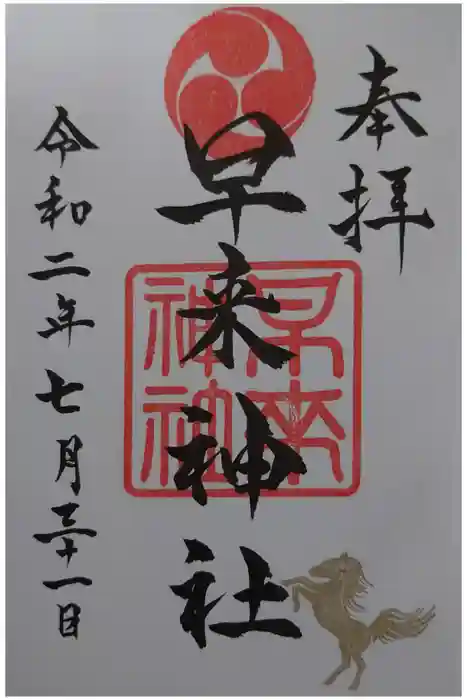 奉拝
早来神社
早来
神社
令和二年七月三十一日